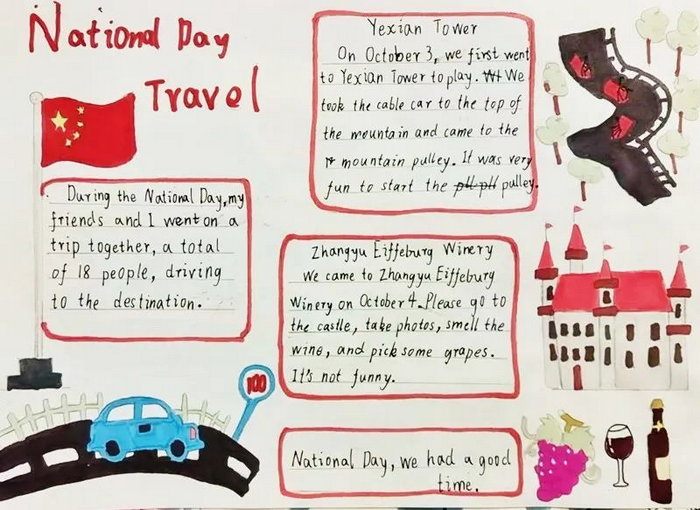 National Day
Travel
During the National Day, my
friends and I went on a
trip together, a total
of 18 people, driving
to the destination.
Yexian Tower
On October 3, we first went
to Yexian Tower to play. We
took the cable car to the top of
the mountain and came to the
mountain pulley. It was very
fun to start the pulley.
Zhangyu Eiffeburg Winery
We came to Zhangyu Eiffeburg
Winery on October 4. Please go to
the castle, take photos, smell the
wine, and pick some grapes.
It's not funny.
100
National Day, we had a good
time.